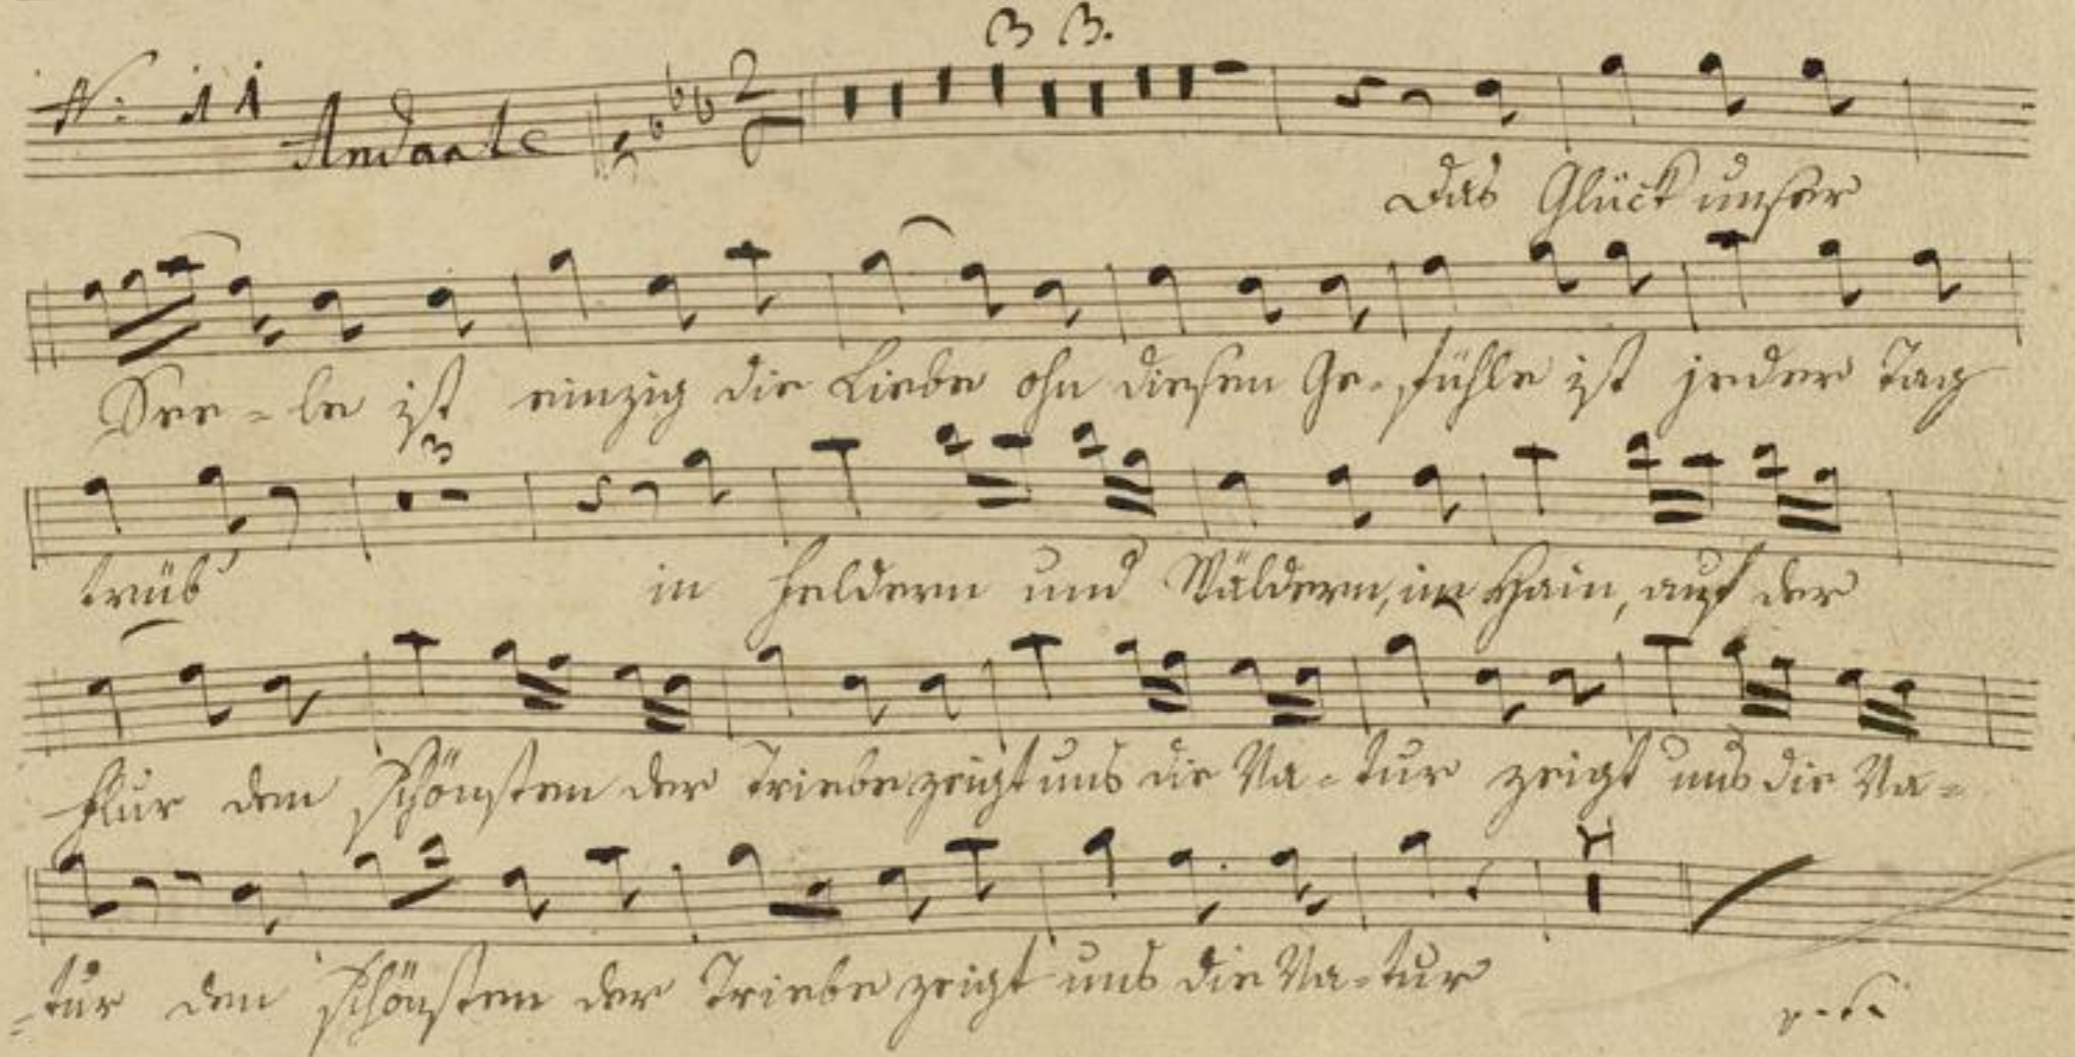 N: 11 Andante 3 3.
Das Glück unser
See-le ist einzig die Liebe ohn diesen Ge-fühle ist jeder Tag
3
trüb' in Feldern und Wäldern, im Hain, auf der
Flur den schönsten der Triebe zeigt uns die Na-tur zeigt uns die Na-
-tur den schönsten der Triebe zeigt uns die Na-tur